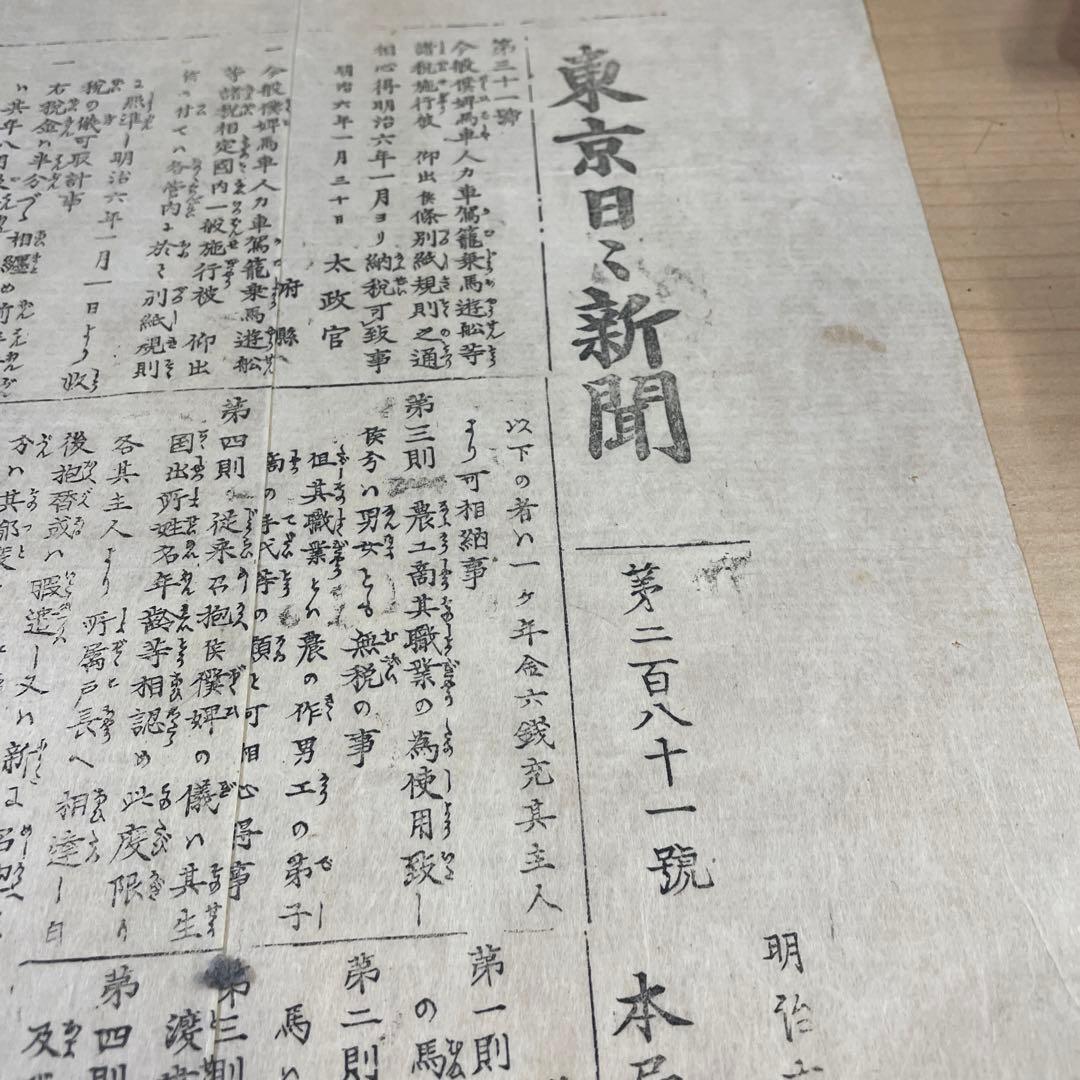 東京日〻新聞
第二百八十一號
明治
本局
第三十一號
今般僕婢馬車人力車駕籠乗馬遊舩等
諸税施行被 仰出候條別紙規則之通
相心得明治六年一月ヨリ納税可致事
明治六年一月三十日 太政官
府縣
一 今般僕婢馬車人力車駕籠乗馬遊舩
等諸税相定國内一般施行被 仰出
候ニ付てハ各管内ニ於て別紙規則
ニ照準し明治六年一月一日より収
税の儀可取計事
一 右税金ハ半分づゝ相纏め
以下の者ハ一ヶ年金六銭充其主人
より可相納事
第三則 農工商其職業の為使用致し
候分ハ男女とも無税の事
但其職業とハ農の作男工の弟子
商の手代等の類と可相心得事
第四則 従来召抱候僕婢の儀ハ其生
国出所姓名年齢等相認め此度限り
各其主人より所属戸長へ相達し自
後抱替或ハ暇遣し又ハ新ニ召抱
第一則
の馬
第二則
馬ハ
第三則
渡
第四則
及